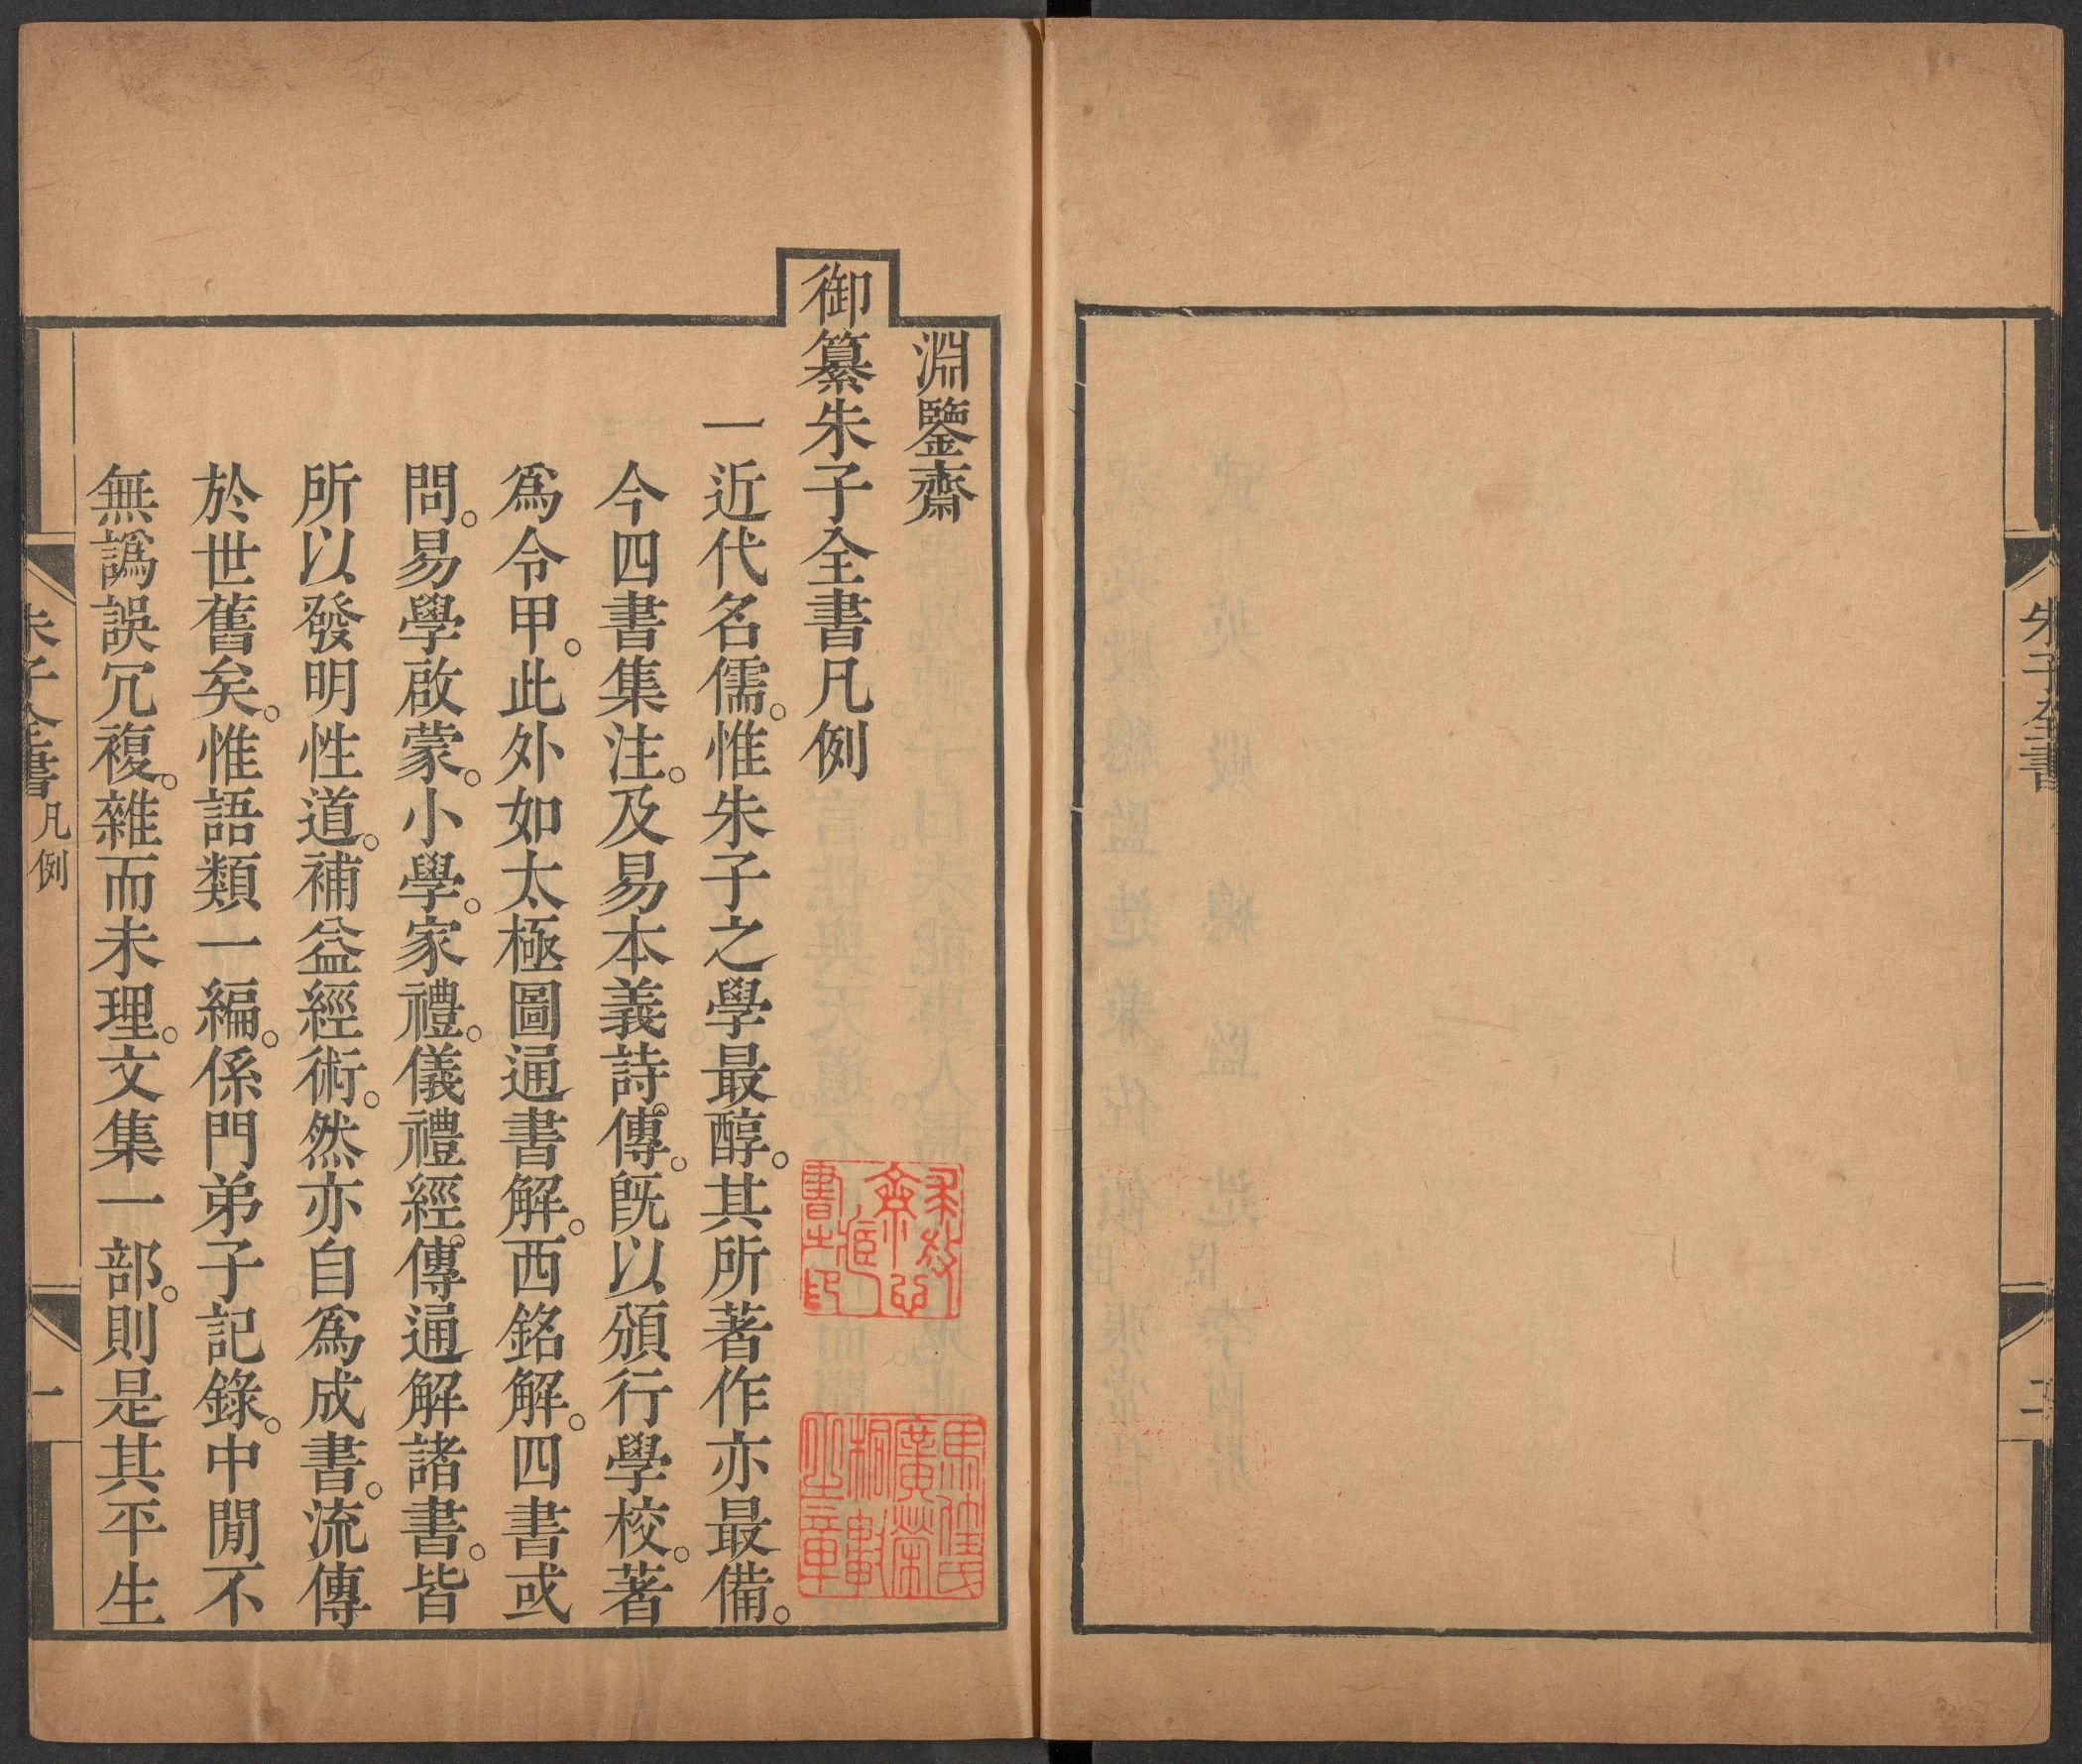 朱子全書
二
淵鑒齋
御纂朱子全書凡例
一近代名儒。惟朱子之學最醇。其所著作亦最備。
今四書集注。及易本義詩。傳。旣以頒行學校。著
爲令甲。此外如太極圖通書解。西銘解。四書或
問。易學啟蒙。小學。家禮。儀禮經。傳通解諸書。皆
所以發明性道。補益經術。然亦自爲成書。流傳
於世舊矣。惟語類一編。係門弟子記錄。中閒不
無譌誤冗複。雜而未理。文集一部。則是其平生
朱子全書
凡例
一